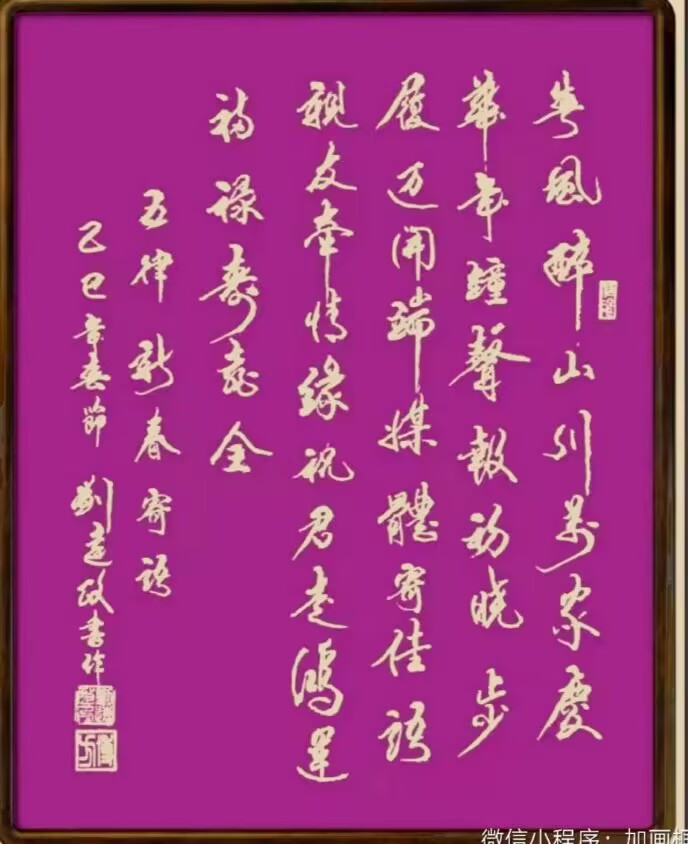 春風醉山川萬家慶
華年鐘聲報初曉步
履迈開端媒體寄佳語
親友牽情緣祝君走鴻運
福祿壽喜全
五律新春寄語
乙巳年春節 劉書作
微信小程序：加画框